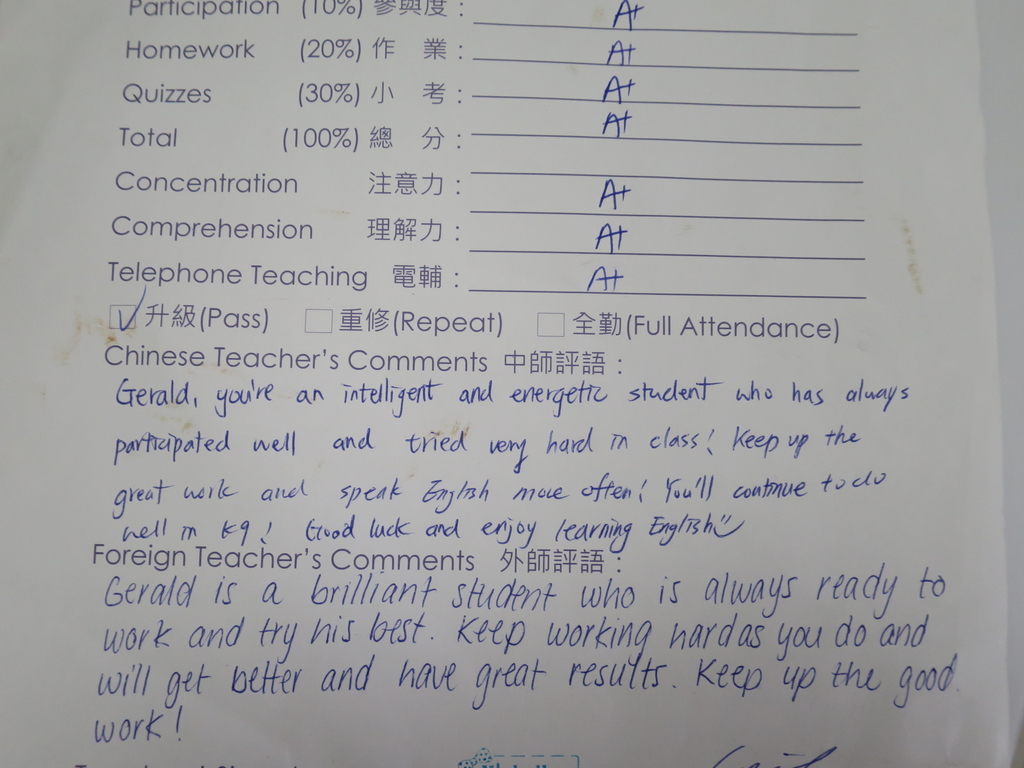 Participation (10%) 參與度： A+
Homework (20%) 作 業： A+
Quizzes (30%) 小 考： A+
Total (100%) 總 分： A+
Concentration 注意力： A+
Comprehension 理解力： A+
Telephone Teaching 電輔： A+
升級(Pass) 重修(Repeat) 全勤(Full Attendance)
Chinese Teacher's Comments 中師評語：
Gerald, you're an intelligent and energetic student who has always
participated well and tried very hard in class! Keep up the
great work and speak English more often! You'll continue to do
well in K9! Good luck and enjoy learning English
Foreign Teacher's Comments 外師評語：
Gerald is a brilliant student who is always ready to
work and try his best. Keep working hard as you do and
will get better and have great results. Keep up the good
work!